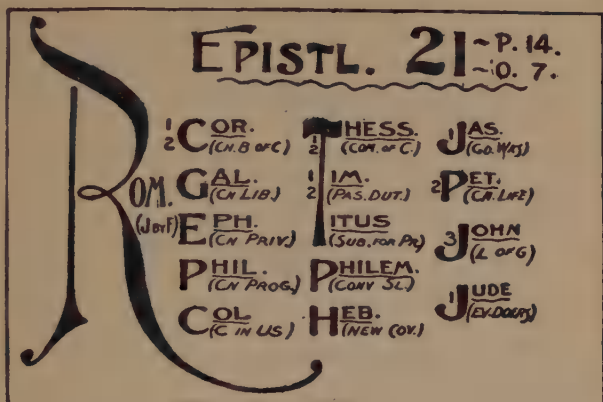 EPISTL. 21 ~P. 14.
~O. 7.
ROM.
(J BY F)
1 2 COR.
(CH. B OF C)
GAL.
(CN LIB.)
EPH.
(CN PRIV.)
PHIL.
(CN PROG.)
COL
(C IN US)
1 2 THESS.
(COM. OF C.)
1 2 TIM.
(PAS. DUT.)
TITUS
(SUB. FOR PR)
PHILEM.
(CONV SL.)
HEB.
(NEW COV.)
1 JAS.
(GD. WKS)
2 PET.
(CN. LIFE)
3 JOHN
(L OF G)
1 JUDE
(EV. DOERS)